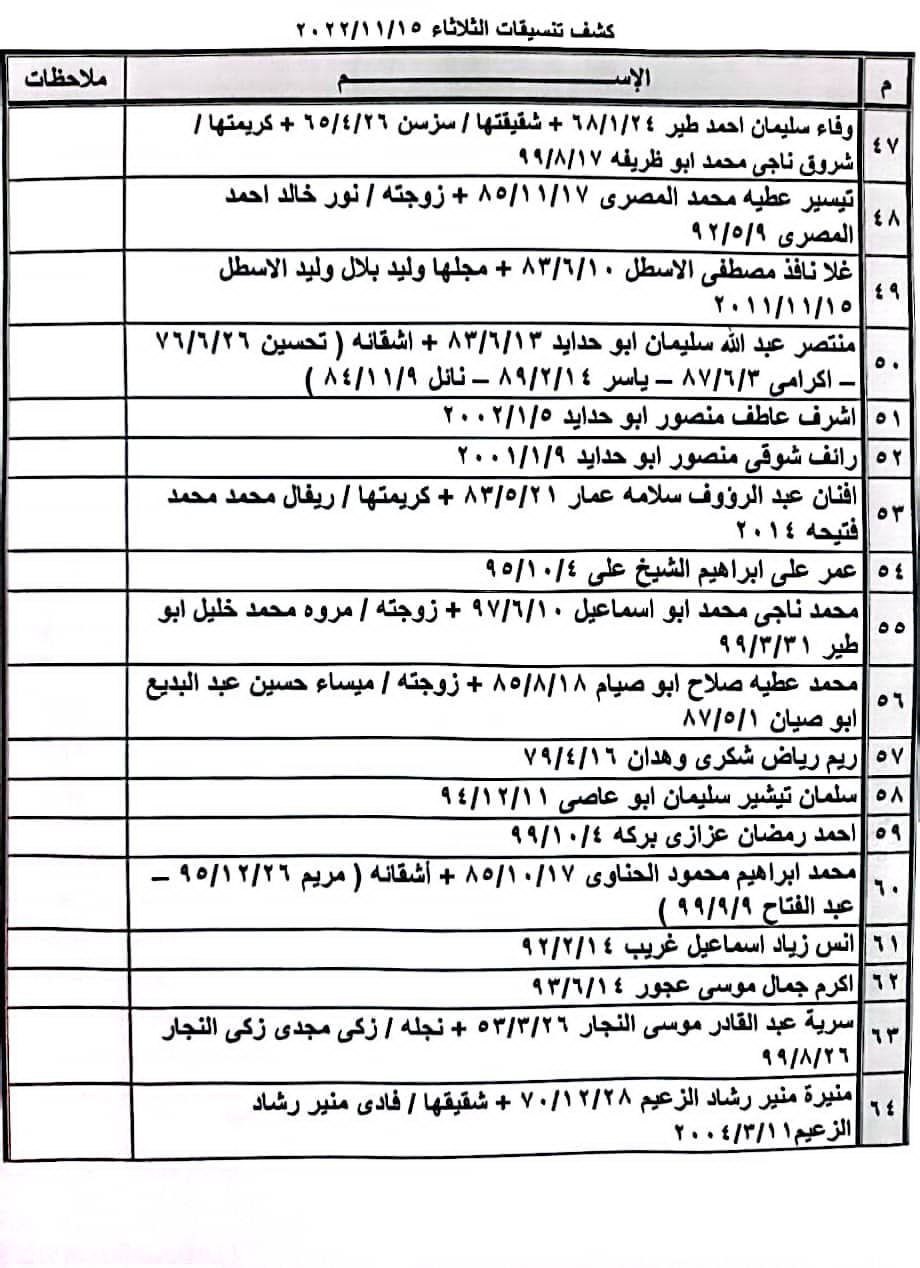 كشف تنسيقات الثلاثاء ٢٠٢٢/١١/١٥
م الإســـــــــم ملاحظات
٤٧ وفاء سليمان احمد طير ٦٨/١/٢٤ + شقيقتها / سزسن ٦٥/٤/٢٦ + كريمتها /
شروق ناجى محمد ابو ظريفه ٩٩/٨/١٧
٤٨ تيسير عطيه محمد المصرى ٨٥/١١/١٧ + زوجته / نور خالد احمد
المصرى ٩٢/٥/٩
٤٩ غلا نافذ مصطفى الاسطل ٨٣/٦/١٠ + مجلها وليد بلال وليد الاسطل
٢٠١١/١١/١٥
٥٠ منتصر عبد الله سليمان ابو حدايد ٨٣/٦/١٣ + اشقانه ( تحسين ٧٦/٦/٢٦
– اكرامى ٨٧/٦/٣ – ياسر ٨٩/٢/١٤ – نائل ٨٤/١١/٩ )
٥١ اشرف عاطف منصور ابو حدايد ٢٠٠٢/١/٥
٥٢ رائف شوقى منصور ابو حدايد ٢٠٠١/١/٩
٥٣ افنان عبد الرؤوف سلامه عمار ٨٣/٥/٢١ + كريمتها / ريفال محمد محمد
فتيحه ٢٠١٤
٥٤ عمر على ابراهيم الشيخ على ٩٥/١٠/٤
٥٥ محمد ناجى محمد ابو اسماعيل ٩٧/٦/١٠ + زوجته / مروه محمد خليل ابو
طير ٩٩/٣/٣١
٥٦ محمد عطيه صلاح ابو صيام ٨٥/٨/١٨ + زوجته / ميساء حسين عبد البديع
ابو صيان ٨٧/٥/١
٥٧ ريم رياض شكرى وهدان ٧٩/٤/١٦
٥٨ سلمان تيشير سليمان ابو عاصى ٩٤/١٢/١١
٥٩ احمد رمضان عزازى بركه ٩٩/١٠/٤
٦٠ محمد ابراهيم محمود الحناوى ٨٥/١٠/١٧ + أشقانه ( مريم ٩٥/١٢/٢٦ –
عبد الفتاح ٩٩/٩/٩ )
٦١ انس زياد اسماعيل غريب ٩٢/٢/١٤
٦٢ اكرم جمال موسى عجور ٩٣/٦/١٤
٦٣ سرية عبد القادر موسى النجار ٥٣/٣/٢٦ + نجله / زكى مجدى زكى النجار
٩٩/٨/٢٦
٦٤ منيرة منير رشاد الزعيم ٧٠/١٢/٢٨ + شقيقها / فادى منير رشاد
الزعيم٢٠٠٤/٣/١١